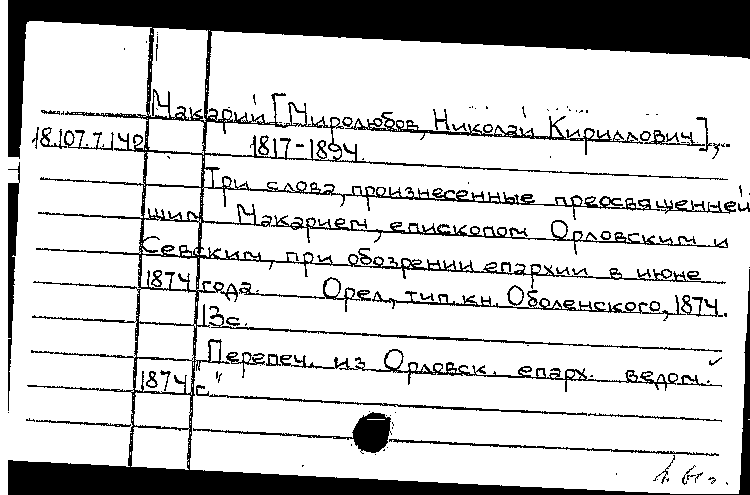 Макарий [Миролюбов, Николай Кириллович],
18.107.7.142 1817-1894.
Три слова, произнесенные преосвященней
шим Макарием, епископом Орловским и
Севским, при обозрении епархии в июне
1874 года. Орел, тип. кн. Оболенского, 1874.
13с.
"Перепеч. из Орловск. епарх. ведом.
1874 г."